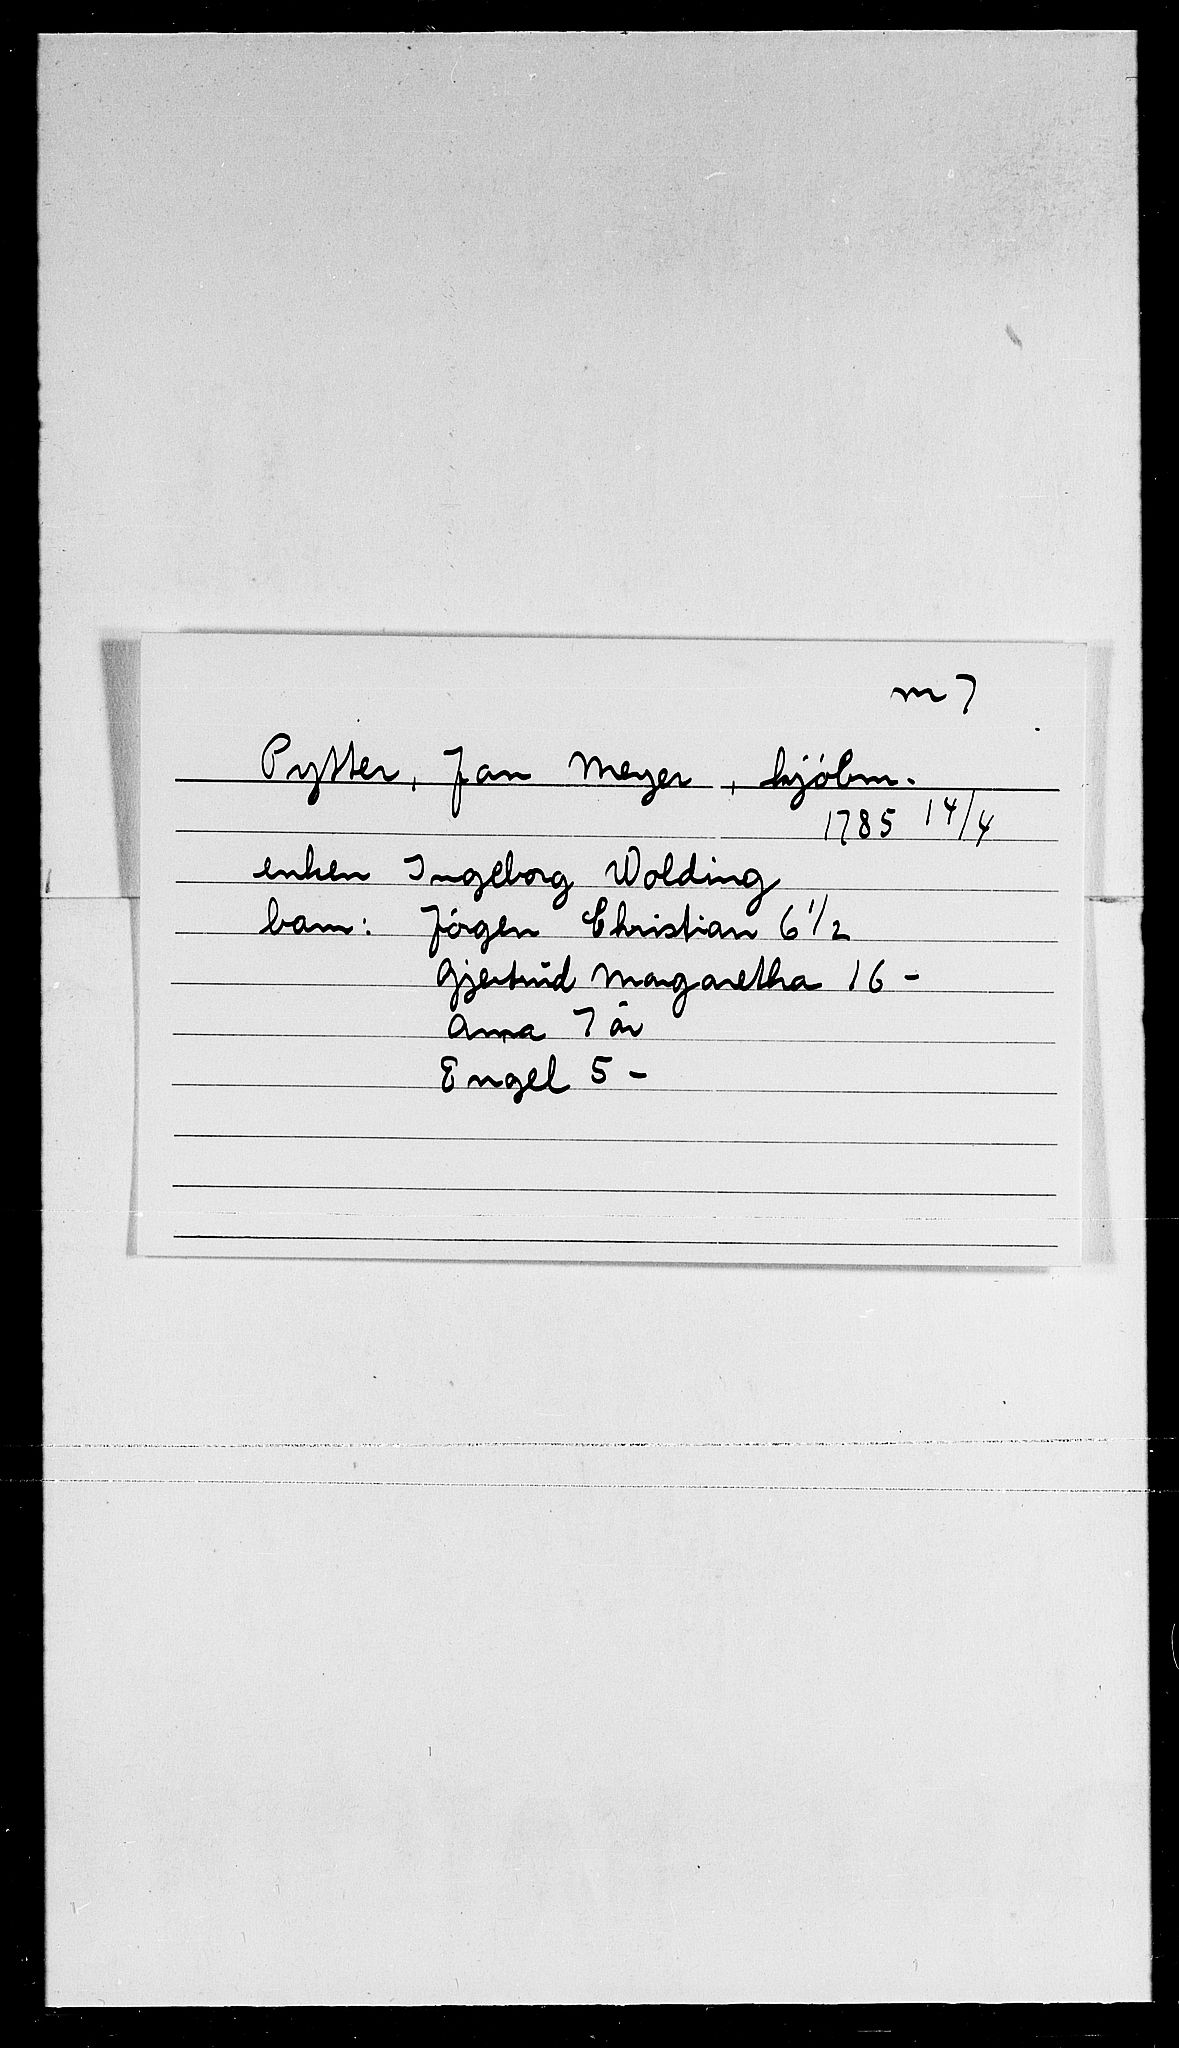 m 7
Pytter, Jan Meyer, kjøbm.
1785 14/4
enken Ingeborg Wolding
barn: Jørgen Christian 6 1/2
Gjertrud Margaretha 16 -
Anna 7 år
Engel 5 -